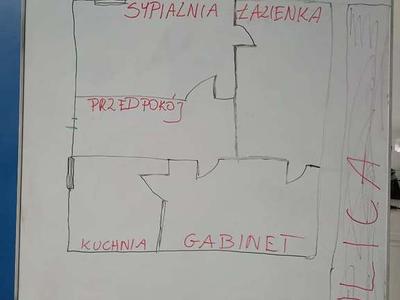 SYPIALNIA
ŁAZIENKA
PRZEDPOKÓJ
KUCHNIA
GABINET
LICA